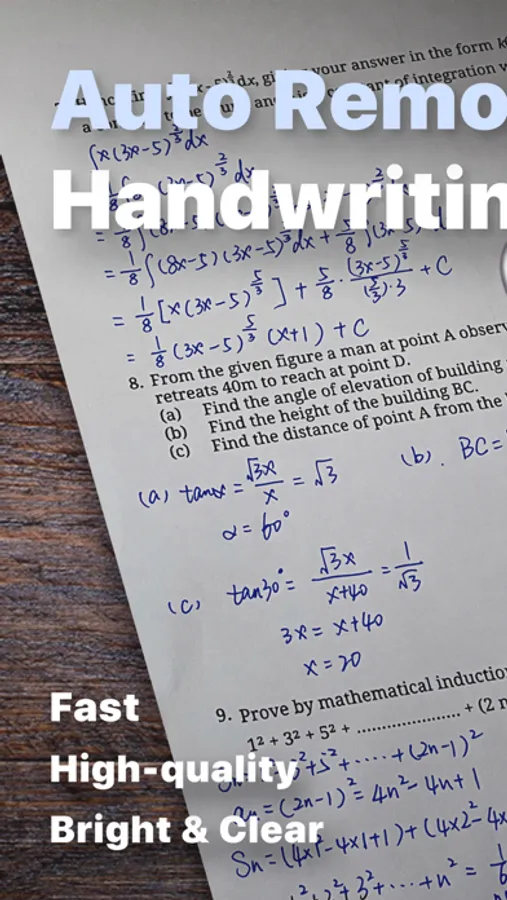 Auto Remo
Handwritin
dx, giving your answer in the form k
of integration w
∫x(3x-5)^(2/3)dx
= 1/8∫(8x-5)(3x-5)^(2/3)dx + 5/8∫(3x-5)
= 1/8[x(3x-5)^(5/3)] + 5/8·(3x-5)^(5/3)/((5/3)·3) + C
= 1/8(3x-5)^(5/3)(x+1) + C
8. From the given figure a man at point A observ
retreats 40m to reach at point D.
(a) Find the angle of elevation of building
(b) Find the height of the building BC.
(c) Find the distance of point A from the
(a) tanα = √3x/x = √3
(b). BC =
α = 60°
(c) tan30° = √3x/(x+40) = 1/√3
3x = x+40
x = 20
Fast
9. Prove by mathematical inductio
1² + 3² + 5² + ..................... + (2n
High-quality
+5²+····+(2n-1)²
an = (2n-1)² = 4n²-4n+1
Bright & Clear
Sn = (4x1²-4x1+1)+(4x2²-4x
+2²+3²+···+n² = 1/6